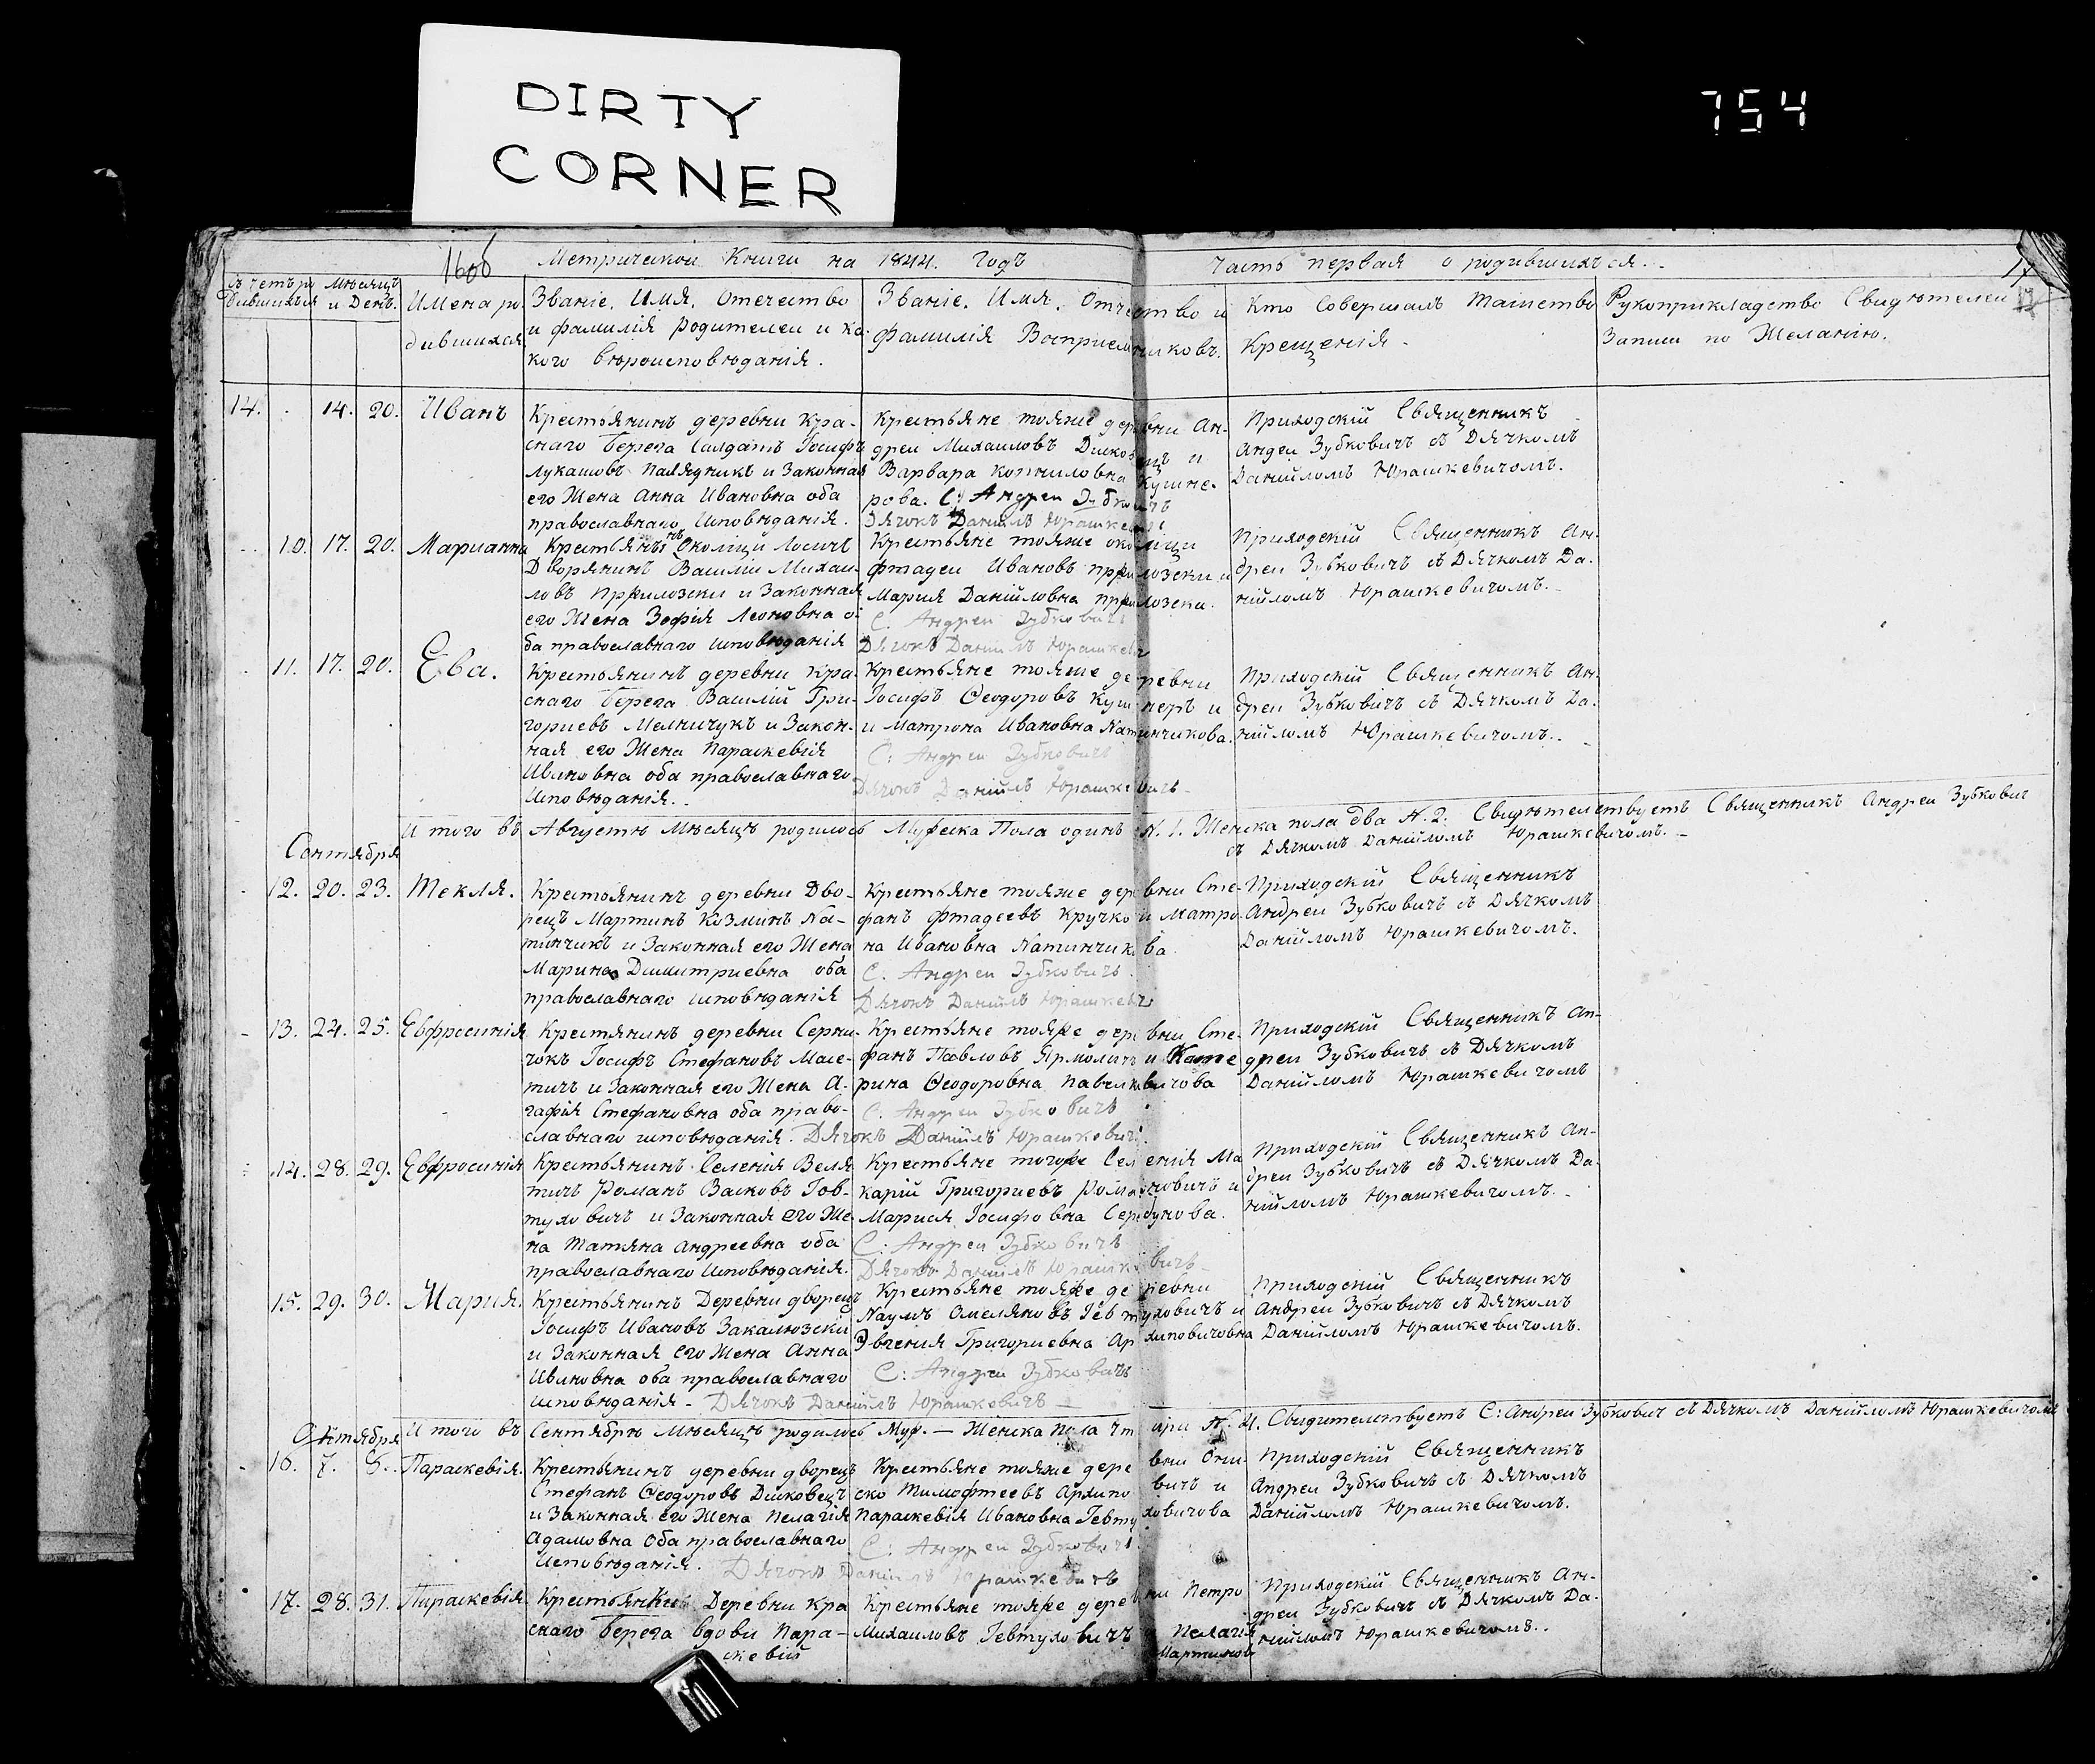 DIRTY
CORNER
754
Метрической Книги на 1844. Годъ
Часть первая о родившихъся.
Мѣсяцъ
и День.
Имена ро-
дившихся
Званіе. Имя. Отечество
и фамилія родителей и ка-
кого вѣроисповѣданія.
Званіе. Имя. Отчество и
фамилія Восприемниковъ.
Кто Совершалъ таинство
Крещенія.
Рукоприкладство Свидѣтелей
Записи по Желанію.
14. 14. 20. Иванъ
Крестьянинъ деревни Кра-
снаго Берега Салдатъ Іосифъ
Лукашовъ и Законная
его Жена Анна Ивановна оба
православнаго Исповѣданія.
Крестьяне тояже деревни Ан-
дреи Михаиловъ и
Варвара Кушне-
рова. С: Андреи Зубковичъ
Дячокъ Даніилъ Юрашкевичъ
Приходскій Священникъ
Андеи Зубковичъ съ Дячкомъ
Даніиломъ Юрашкевичомъ.
10. 17. 20. Марианна
Околицы
Дворянинъ Василіи Михаи-
ловъ и Законная
его Жена Зофія Леоновна о-
ба православнаго исповѣданія
Крестьяне тояже околицы
Ивановъ и
Мария Даніиловна
С. Андреи Зубковичъ
Дячокъ Даніилъ Юрашкевич
Приходскій Священникъ Ан-
дреи Зубковичъ съ Дячкомъ Да-
ніиломъ Юрашкевичомъ.
11. 17. 20. Ева.
Крестьянинъ деревни Кра-
снаго Берега Василій Гри-
гориевъ Мелничукъ и Закон-
ная его Жена Параскевія
Ивановна оба православнаго
Исповѣданія.
Крестьяне тояже деревни
Іосифъ Ѳеодоровъ Кушнеръ и
и Матрона Ивановна Латинчикова.
С: Андреи Зубковичъ
Дячокъ Даніилъ Юрашкевичъ
Приходскій Священникъ Ан-
дреи Зубковичъ съ Дячкомъ Да-
ніиломъ Юрашкевичомъ.
И того въ Августѣ Мѣсяцѣ родилось Мужеска Пола одинъ N. 1. Женска пола два N. 2. Свидѣтелствуетъ Священникъ Андреи Зубкович
съ Дячкомъ Даніиломъ Юрашкевичомъ.
Сентября
12. 20. 23. Текля.
Крестьянинъ деревни Дво-
рецъ Мартинъ Козминъ Ла-
тинчикъ и Законная его Жена
Марина Димитриевна оба
православнаго исповѣданія
Крестьяне тояже деревни Сте-
фанъ Фтадеевъ Кручко и Матро-
на Ивановна Латинчикова
С. Андреи Зубковичъ
Дячокъ Даніилъ Юрашкевичъ
Приходскій Священникъ
Андреи Зубковичъ съ Дячкомъ
Даніиломъ Юрашкевичомъ.
13. 24. 25. Евфросинія
Крестянинъ деревни Серни-
чокъ Іосифъ Стефановъ Масе-
тичъ и Законная его Жена А-
гафія Стефановна оба право-
славнаго исповѣданія.
Крестьяне тояже деревни Сте-
фанъ Павловъ Ярмоличъ и Кате
рина Ѳеодоровна Павелковичова
С. Андреи Зубковичъ
Дячокъ Даніилъ Юрашковичъ.
Приходскій Священникъ Ан-
дреи Зубковичъ съ Дячкомъ
Даніиломъ Юрашкевичомъ
14. 28. 29. Евфросинія
Крестьянинъ Селенія Веля
тичъ Романъ Васковъ Іов-
туховичъ и Законная его Же
на Татяна Андреевна оба
православнаго Исповѣданія.
Крестьяне тогоже Селенія Ма
карій Григориевъ Романовичъ и
Мариея Іосифовна
С: Андреи Зубковичъ
Дячокъ Даніилъ Юрашкевичъ
Приходскій Священникъ Ан-
дреи Зубковичъ съ Дячкомъ Да-
ніиломъ Юрашкевичомъ.
15. 29. 30. Мария.
Крестьянинъ Деревни дворецъ
Іосифъ Ивановъ Закалюзскіи
и Законная его Жена Анна
Ивановна оба православнаго
исповѣданія -
Крестьяне тояже деревни
Наумъ Омеляновъ Іевтуховичъ и
Эвгения Григориевна Архиповичовна
С: Андреи Зубковичъ
Дячокъ Даніилъ Юрашкевичъ
Приходскій Священникъ
Андреи Зубковичъ съ Дячкомъ
Даніиломъ Юрашкевичомъ.
И того въ Сентябрѣ Мѣсяцѣ родилось Муж. — Женска Пола N. 4. Свидителствуетъ С: Андреи Зубкович съ Дячкомъ Даніиломъ Юрашкевичомъ
Октября
16. 7. 8. Параскевія.
Крестьянинъ деревни дворецъ
Стефанъ Ѳеодоровъ Дисковецъ
и Законная его Жена Пелагія
Адамовна Оба православнаго
Исповѣданія.
Крестьяне тояже деревни Они-
ско Тимофтеевъ Архиповичъ и
Параскевія Ивановна Іевтуховичова
С: Андреи Зубковичъ
Дячокъ Даніилъ Юрашкевичъ
Приходскій Священникъ
Андреи Зубковичъ съ Дячкомъ
Даніиломъ Юрашкевичомъ.
17. 28. 31. Параскевія
Крестьянки Деревни Кра
снаго Берега вдови Пара-
скевіи
Крестьяне тояже деревни Петро
Михаиловъ Іевтуховичъ и Пелагія
Мартинов
Приходскій Священникъ Ан-
дреи Зубковичъ съ Дячкомъ Да-
ніиломъ Юрашкевичомъ.